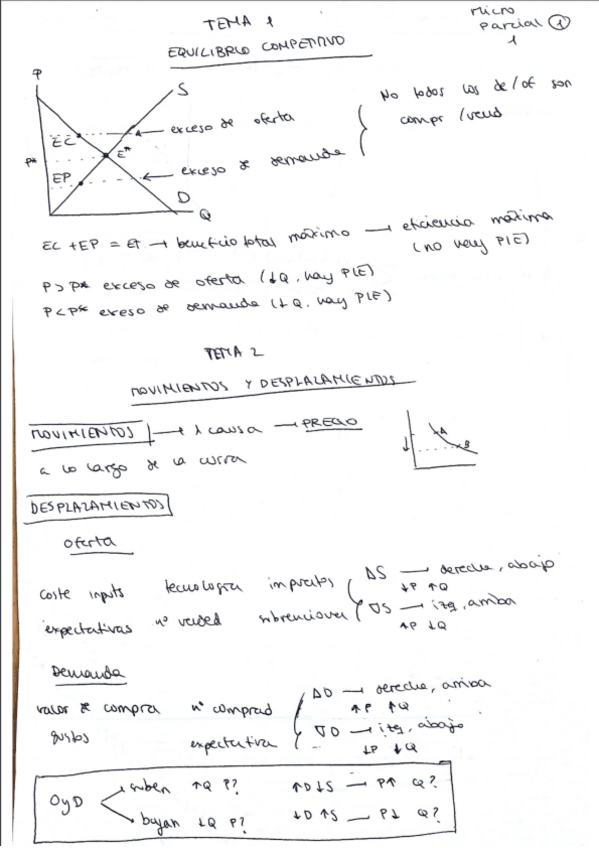 TEMA 1
EQUILIBRIO COMPETITIVO
micro
parcial ①
1
P
S
EC
exceso de oferta
P*
E*
EP
exceso de demanda
D
Q
No todos los de/of son
compr /vend
EC + EP = ET → beneficio total máximo → eficiencia máxima
(no hay PIE)
P > P* exceso de oferta (↓Q, hay PIE)
P < P* exeso de demanda (↓Q, hay PIE)
TEMA 2
MOVIMIENTOS Y DESPLAZAMIENTOS
MOVIMIENTOS → 1 causa → PRECIO
a lo largo de la curva
A
B
DESPLAZAMIENTOS
Oferta
coste inputs tecnología impuestos
expectativas nº vended subvenciones
ΔS → derecha, abajo
↓P ↑Q
∇S → izq, arriba
↑P ↓Q
Demanda
valor de compra nº comprad
gustos expectativa
ΔD → derecha, arriba
↑P ↑Q
∇D → izq, abajo
↓P ↓Q
OyD
suben ↑Q P? ↑D↓S — P↑ Q?
bajan ↓Q P? ↓D ↑S — P↓ Q?